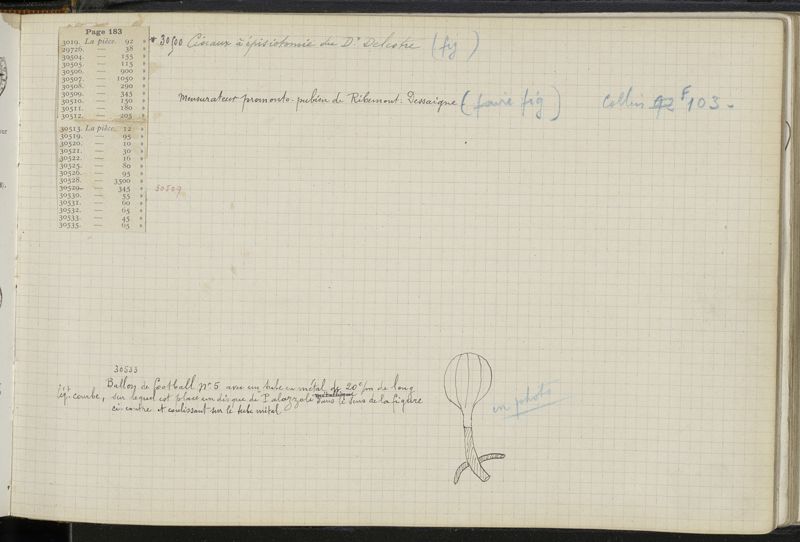 Page 183
3019. La pièce. 92 »
29726. — 38 »
30504. — 155 »
30505. — 115 »
30506. — 900 »
30507. — 1050 »
30508. — 290 »
30509. — 345 »
30510. — 150 »
30511. — 180 »
30512. — 205 »
30513. La pièce. 12 »
30519. — 95 »
30520. — 10 »
30521. — 30 »
30522. — 16 »
30525. — 80 »
30526. — 95 »
30528. — 3500 »
30529. — 345 » 30509
30530. — 55 »
30531. — 60 »
30532. — 65 »
30533. — 45 »
30535. — 65 »
Ciseaux à épisiotomie du Dr Delestre (fig)
Mensurateur promonto-pubien de Ribemont-Dessaigne (faire fig) Collin F 103-
30533
Ballon de football No 5 avec un tube en métal de 20 c/m de long
lég. courbe, sur lequel est placé un disque de Palazzoli métallique dans le sens de la figure
ci-contre et coulissant sur le tube métal
en photo